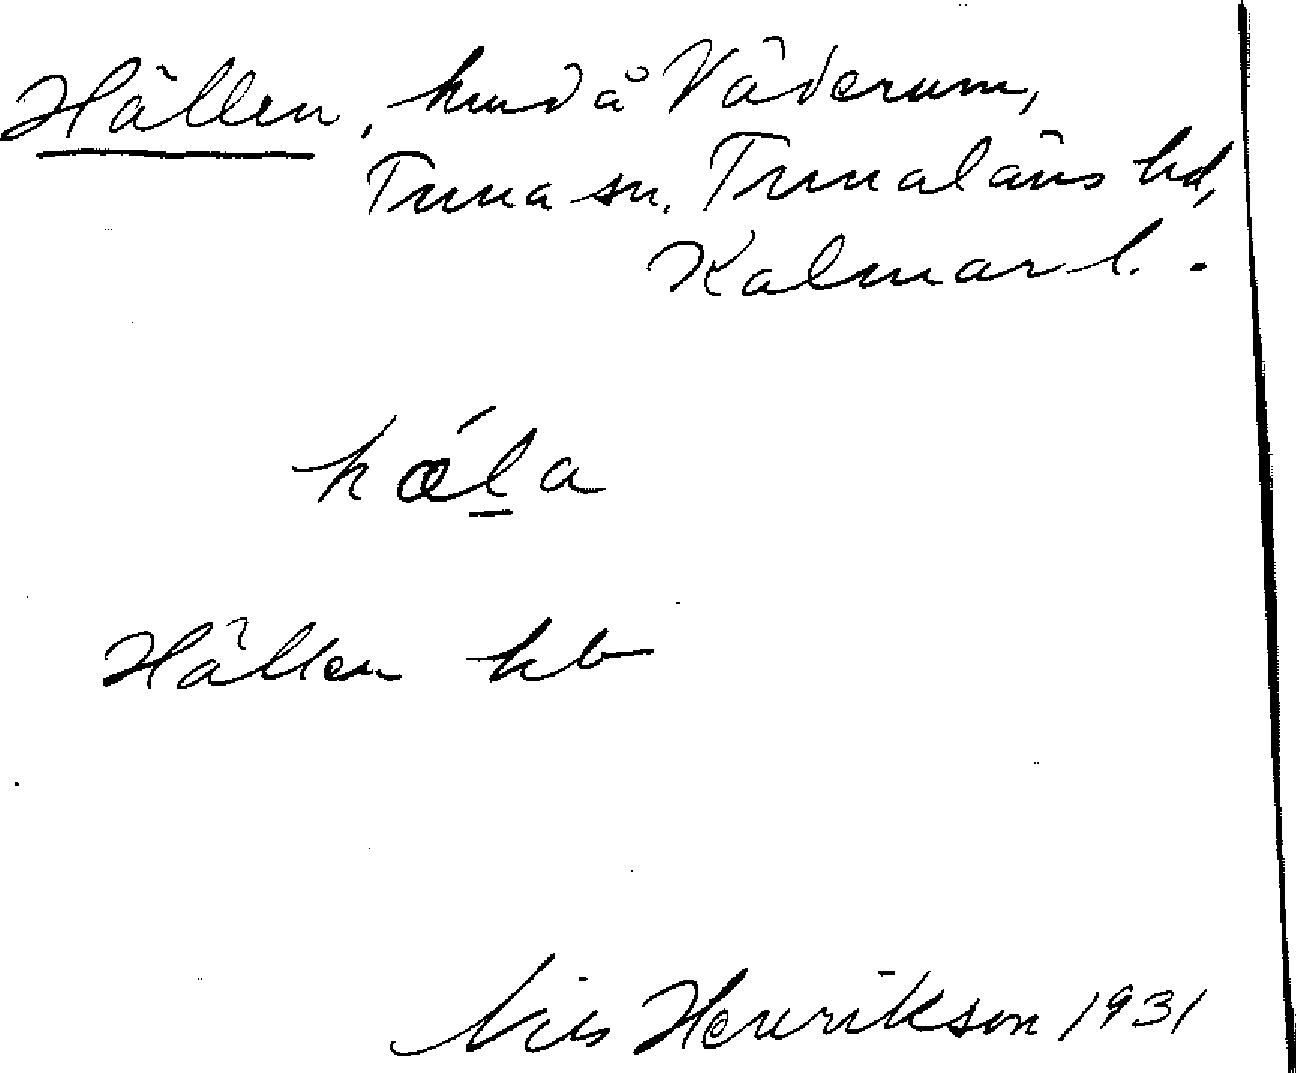 Hällen, hmd å Väderum,
Tuna sn. Tunaläns hd,
Kalmar l. -
hǽla
Hällen kb
Nils Henrikson 1931